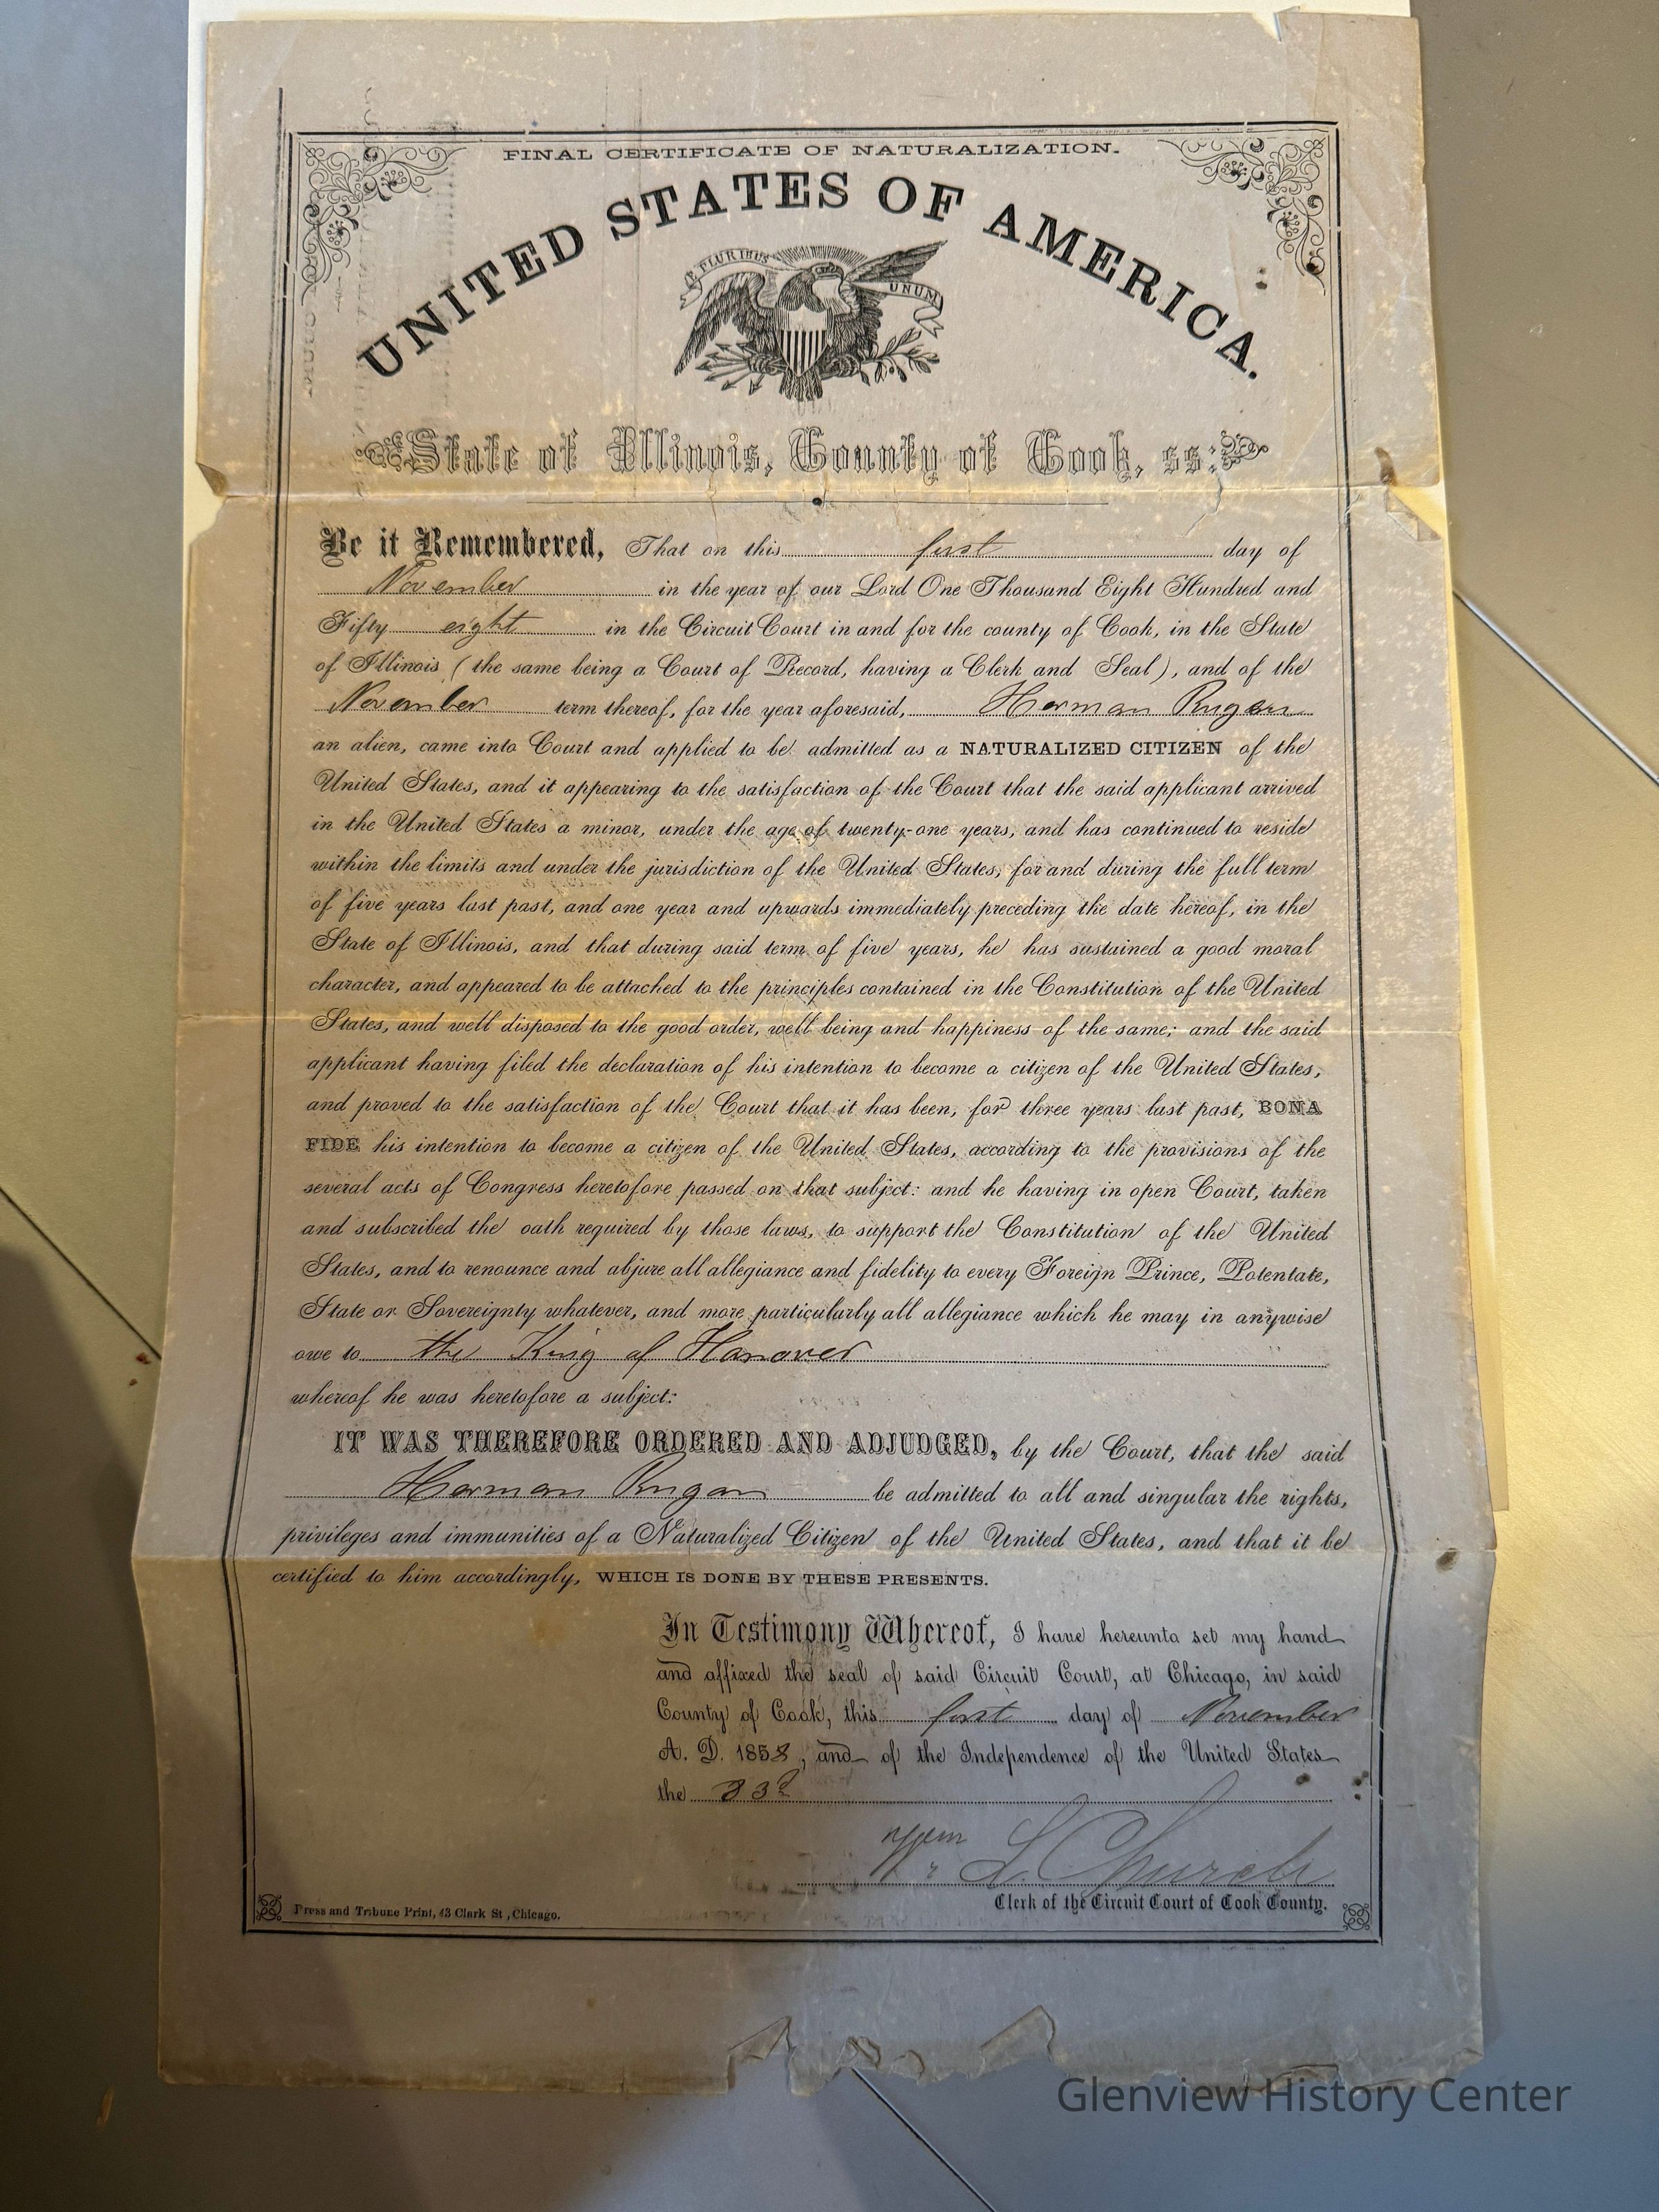 FINAL CERTIFICATE OF NATURALIZATION.
UNITED STATES OF AMERICA.
E PLURIBUS UNUM
State of Illinois, County of Cook, ss:
Be it Remembered, That on this first day of
November in the year of our Lord One Thousand Eight Hundred and
Fifty eight in the Circuit Court in and for the county of Cook, in the State
of Illinois (the same being a Court of Record, having a Clerk and Seal), and of the
November term thereof, for the year aforesaid, Herman Rugen
an alien, came into Court and applied to be admitted as a NATURALIZED CITIZEN of the
United States, and it appearing to the satisfaction of the Court that the said applicant arrived
in the United States a minor, under the age of twenty-one years, and has continued to reside
within the limits and under the jurisdiction of the United States, for and during the full term
of five years last past, and one year and upwards immediately preceding the date hereof, in the
State of Illinois, and that during said term of five years, he has sustained a good moral
character, and appeared to be attached to the principles contained in the Constitution of the United
States, and well disposed to the good order, well being and happiness of the same; and the said
applicant having filed the declaration of his intention to become a citizen of the United States,
and proved to the satisfaction of the Court that it has been, for three years last past, BONA
FIDE his intention to become a citizen of the United States, according to the provisions of the
several acts of Congress heretofore passed on that subject: and he having in open Court, taken
and subscribed the oath required by those laws, to support the Constitution of the United
States, and to renounce and abjure all allegiance and fidelity to every Foreign Prince, Potentate,
State or Sovereignty whatever, and more particularly all allegiance which he may in anywise
owe to the King of Hanover
whereof he was heretofore a subject:
IT WAS THEREFORE ORDERED AND ADJUDGED, by the Court, that the said
Herman Rugen be admitted to all and singular the rights,
privileges and immunities of a Naturalized Citizen of the United States, and that it be
certified to him accordingly, WHICH IS DONE BY THESE PRESENTS.
In Testimony Whereof, I have hereunto set my hand
and affixed the seal of said Circuit Court, at Chicago, in said
County of Cook, this first day of November
A. D. 1858, and of the Independence of the United States
the 83d
Wm L. Church
Clerk of the Circuit Court of Cook County.
Press and Tribune Print, 43 Clark St, Chicago.
Glenview History Center